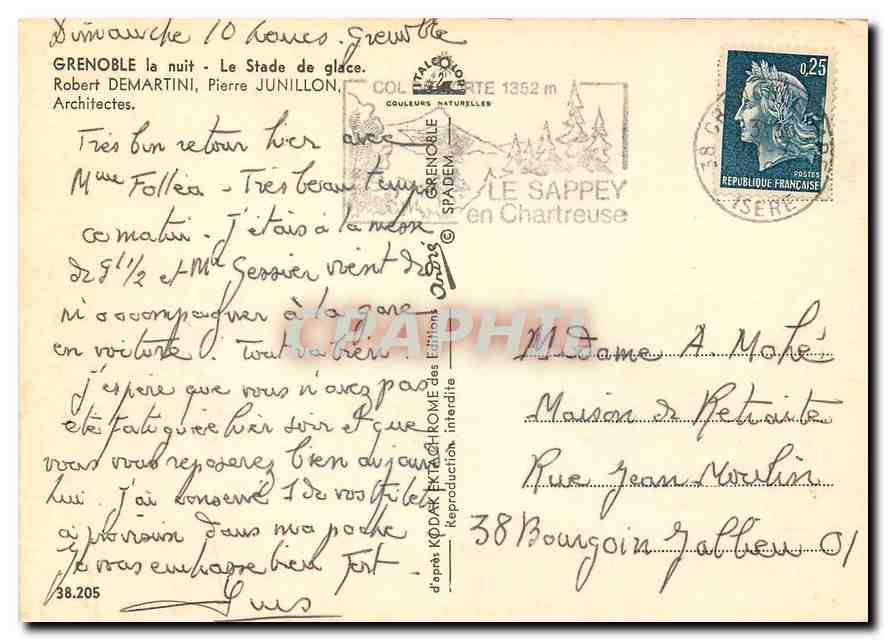 Dimanche 10 heures. Grenoble
GRENOBLE la nuit - Le Stade de glace.
Robert DEMARTINI, Pierre JUNILLON,
Architectes.
Très bon retour hier avec
Mme Folléa - Très beau temps
ce matin. J'étais à la messe
de 9h 1/2 et Mr Gessier vient de
m'accompagner à la gare
en voiture. Tout va bien.
J'espère que vous n'avez pas
été fatiguée hier soir et que
vous vous reposerez bien aujour
hui. J'ai conservé 1 de vos filets
à provision dans ma poche
Je vous embrasse bien fort.
38.205
ITALCOLOR
COULEURS NATURELLES
COL PORTE 1352 m
LE SAPPEY
en Chartreuse
0,25
POSTES
REPUBLIQUE FRANÇAISE
38
ISERE
d'après KODAK EKTACHROME des Editions André © GRENOBLE
Reproduction interdite SPADEM
CPAPHIL
Madame A. Mohé
Maison de Retraite
Rue Jean Moulin
38 Bourgoin Jallieu 01